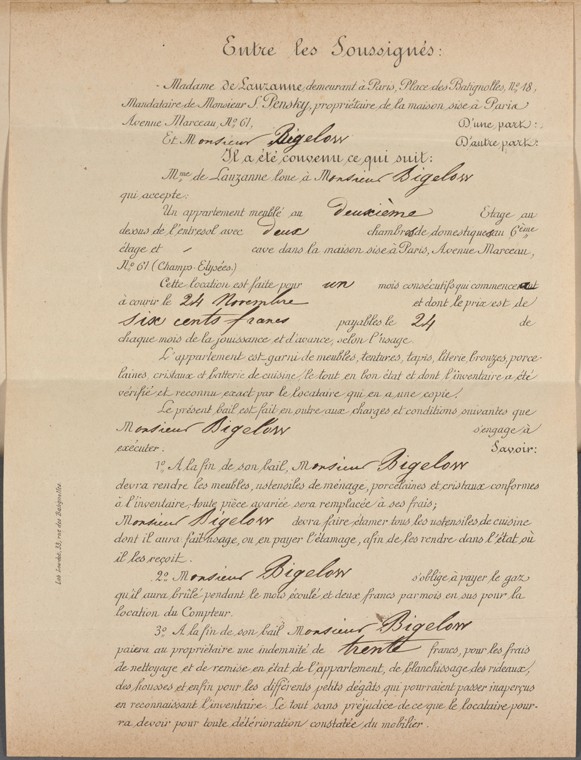 Entre les Soussignés:
Madame de Lauzanne, demeurant à Paris, Place des Batignolles, No 18,
Mandataire de Monsieur S. Pensky, propriétaire de la maison sise à Paris
Avenue Marceau, No 61, D'une part:
Et Monsieur Bigelow D'autre part:
Il a été convenu ce qui suit:
Mme de Lauzanne loue à Monsieur Bigelow
qui accepte:
Un appartement meublé au deuxième Etage au
dessus de l'entresol avec deux chambres de domestiques au 6ème
étage et - cave dans la maison sise à Paris, Avenue Marceau,
No 61 (Champs-Elysées)
Cette location est faite pour un mois consécutifs qui commencent
à courir le 24 Novembre et dont le prix est de
six cents francs payables le 24 de
chaque mois de la jouissance et d'avance, selon l'usage.
L'appartement est garni de meubles, tentures, tapis, literie, bronzes, porce-
laines, cristaux et batterie de cuisine, le tout en bon état et dont l'inventaire a été
vérifié et reconnu exact par le locataire qui en a une copie.
Le présent bail est fait en outre aux charges et conditions suivantes que
Monsieur Bigelow s'engage à
exécuter. Savoir:
1o A la fin de son bail, Monsieur Bigelow
devra rendre les meubles, ustensiles de ménage, porcelaines et cristaux conformes
à l'inventaire toute pièce avariée sera remplacée à ses frais;
Monsieur Bigelow devra faire étamer tous les ustensiles de cuisine
dont il aura fait usage, ou en payer l'étamage, afin de les rendre dans l'état où
il les reçoit.
2o Monsieur Bigelow s'oblige à payer le gaz
qu'il aura brûlé pendant le mois écoulé et deux francs par mois en sus pour la
location du Compteur.
3o A la fin de son bail Monsieur Bigelow
paiera au propriétaire une indemnité de trente francs, pour les frais
de nettoyage et de remise en état de l'appartement, de blanchissage des rideaux,
des housses et enfin pour les différents petits dégâts qui pourraient passer inaperçus
en reconnaissant l'inventaire. Le tout sans préjudice de ce que le locataire pour-
ra devoir pour toute détérioration constatée du mobilier.
33, rue des Batignolles